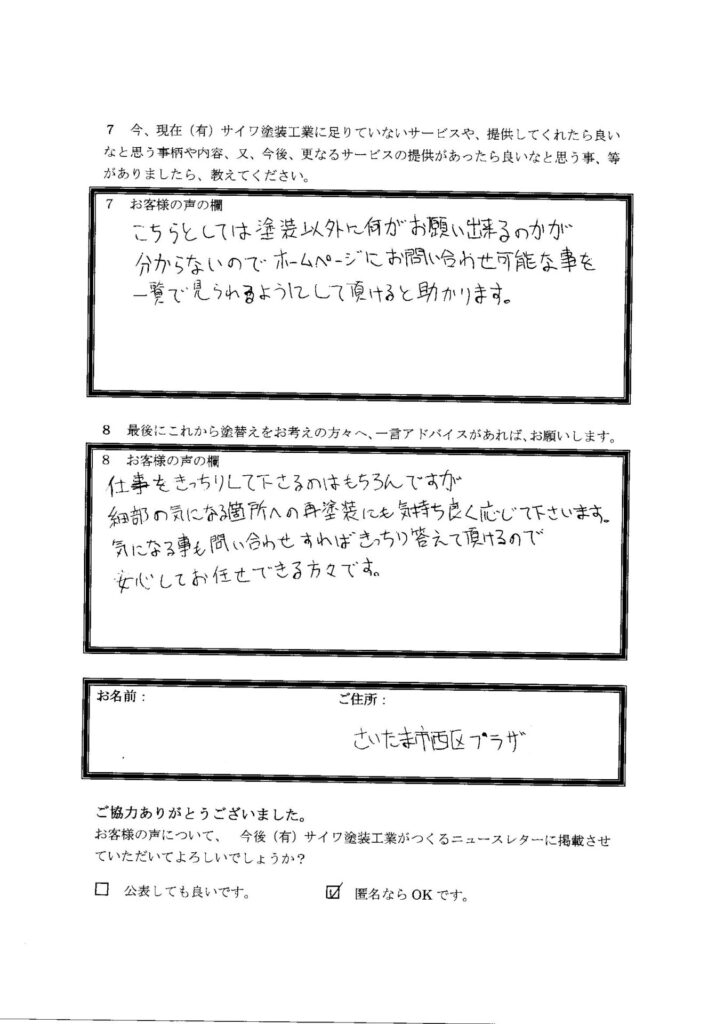 7 今、現在（有）サイワ塗装工業に足りていないサービスや、提供してくれたら良い
なと思う事柄や内容、又、今後、更なるサービスの提供があったら良いなと思う事、等
がありましたら、教えてください。
7 お客様の声の欄
こちらとしては塗装以外に何がお願い出来るのかが
分からないのでホームページにお問い合わせ可能な事を
一覧で見られるようにして頂けると助かります。
8 最後にこれから塗替えをお考えの方々へ、一言アドバイスがあれば、お願いします。
8 お客様の声の欄
仕事をきっちりして下さるのはもちろんですが
細部の気になる箇所への再塗装にも気持ち良く応じて下さいます。
気になる事も問い合わせすればきっちり答えて頂けるので
安心してお任せできる方々です。
お名前： ご住所：
さいたま市西区プラザ
ご協力ありがとうございました。
お客様の声について、 今後（有）サイワ塗装工業がつくるニュースレターに掲載させ
ていただいてよろしいでしょうか？
□ 公表しても良いです。 ☑ 匿名なら OK です。